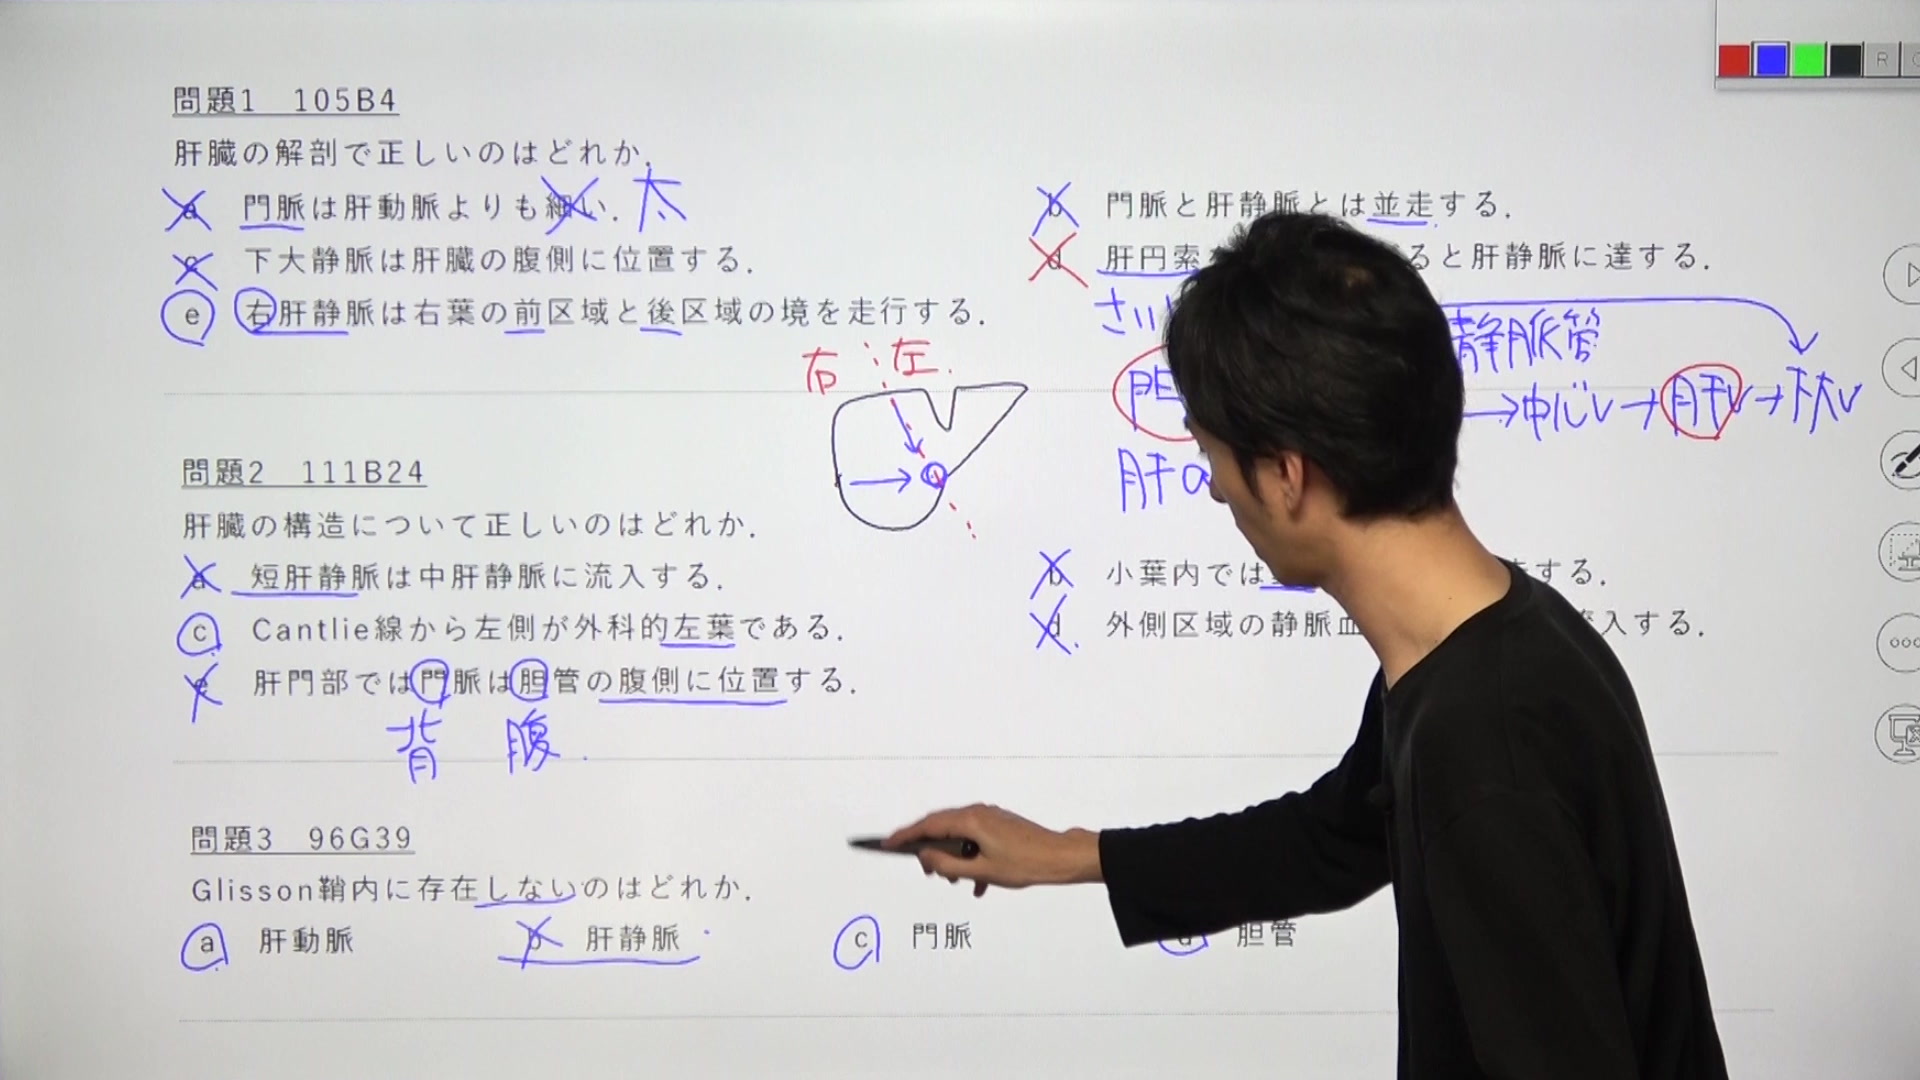 問題1 105B4
肝臓の解剖で正しいのはどれか.
a 門脈は肝動脈よりも細い. 太
b 門脈と肝静脈とは並走する.
c 下大静脈は肝臓の腹側に位置する.
d 肝円索 ると肝静脈に達する.
e 右肝静脈は右葉の前区域と後区域の境を走行する.
さい
静脈管
右 左
→中心v→肝v→下大v
肝a
問題2 111B24
肝臓の構造について正しいのはどれか.
a 短肝静脈は中肝静脈に流入する.
b 小葉内では する.
c Cantlie線から左側が外科的左葉である.
d 外側区域の静脈血 流入する.
e 肝門部では門脈は胆管の腹側に位置する.
背 腹
問題3 96G39
Glisson鞘内に存在しないのはどれか.
a 肝動脈 b 肝静脈 c 門脈 d 胆管
R